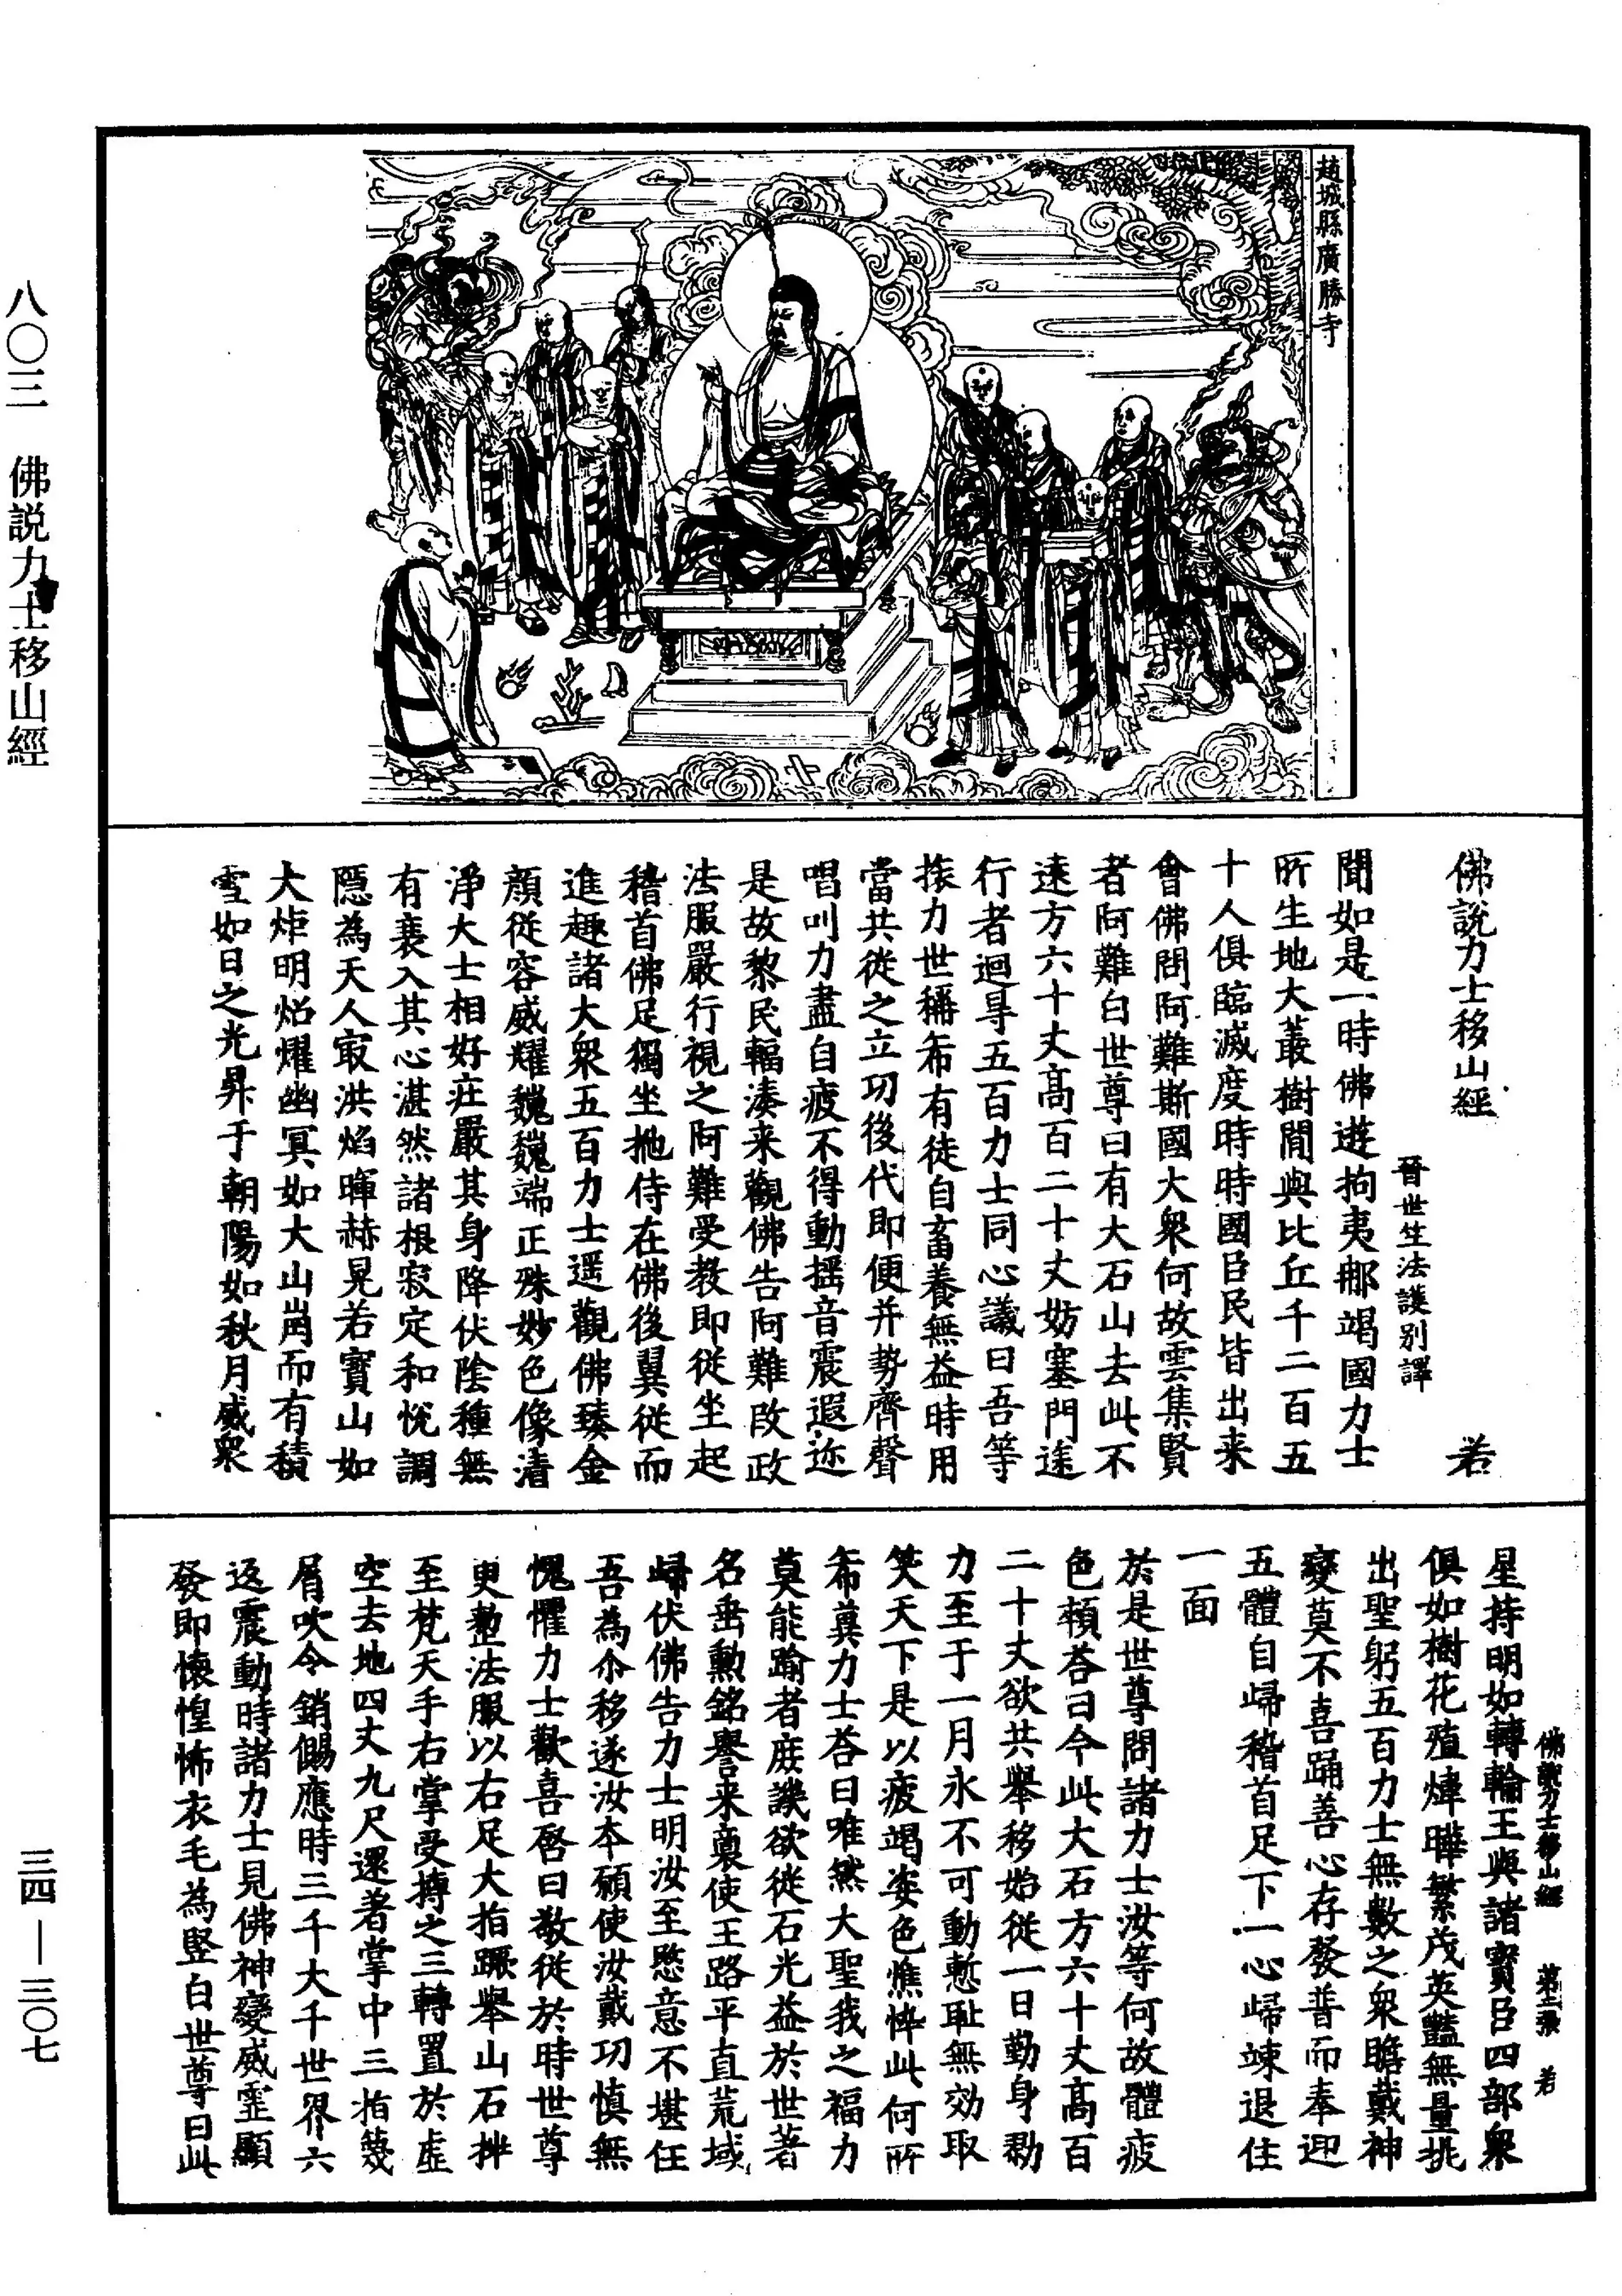 趙城縣廣勝寺
佛說力士移山經　若
晉世竺法護別譯
聞如是一時佛遊拘夷那竭國力士
所生地大叢樹閒與比丘千二百五
十人俱臨滅度時時國臣民皆出来
會佛問阿難斯國大衆何故雲集賢
者阿難白世尊曰有大石山去此不
遠方六十丈髙百二十丈妨塞門途
行者迴㝵五百力士同心議曰吾等
掁力世稱希有徒自畜養無益時用
當共徙之立功後代即便并勢齊聲
唱叫力盡自疲不得動揺音震遐迩
是故黎民輻湊来觀佛告阿難改政
法服嚴行視之阿難受教即從坐起
稽首佛足獨坐拖侍在佛後翼從而
進趣諸大衆五百力士遥觀佛臻金
顔從容威耀巍巍端正殊妙色像清
淨大士相好莊嚴其身降伏陰種無
有衰入其心湛然諸根寂定和悅調
隱為天人㝡洪焰暉赫晃若寳山如
大炬明炤燿幽冥如大山崗而有積
雪如日之光昇于朝陽如秋月威衆
佛說力士移山經　第二張　若
星持明如轉輪王與諸寳臣四部衆
俱如樹花殖煒曄繁茂英豔無量挑
出聖躬五百力士無數之衆瞻戴神
變莫不喜踊善心存發普而奉迎
五體自歸稽首足下一心歸竦退住
一面
於是世尊問諸力士汝等何故體疲
色頓荅曰今此大石方六十丈髙百
二十丈欲共舉移始從一日勤身勠
力至于一月永不可動慙耻無効取
笑天下是以疲竭姿色憔悴此何所
希兾力士荅曰唯然大聖我之福力
莫能踰者庶譏欲徙石光益於世著
名垂勲銘譽来裔使王路平直荒域
歸伏佛告力士明汝至愍意不堪任
吾為尒移遂汝本願使汝戴功愼無
愧懼力士歡喜啓曰敬從於時世尊
更整法服以右足大指蹶舉山石挑
至梵天手右掌受摶之三轉置於虛
空去地四丈九尺還著掌中三指篾
屑吹令銷餲應時三千大千世界六
返震動時諸力士見佛神變威靈顯
發即懷惶怖衣毛為竪白世尊曰此
八〇三　佛説力士移山經
三四—三〇七